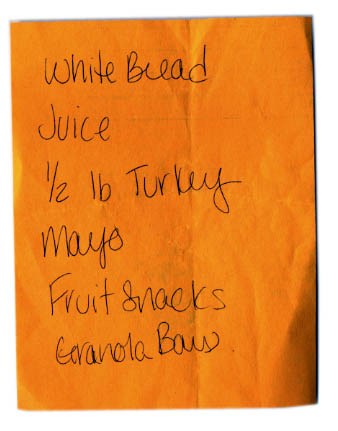 White Bread
Juice
1/2 lb Turkey
Mayo
Fruit Snacks
Granola Bars